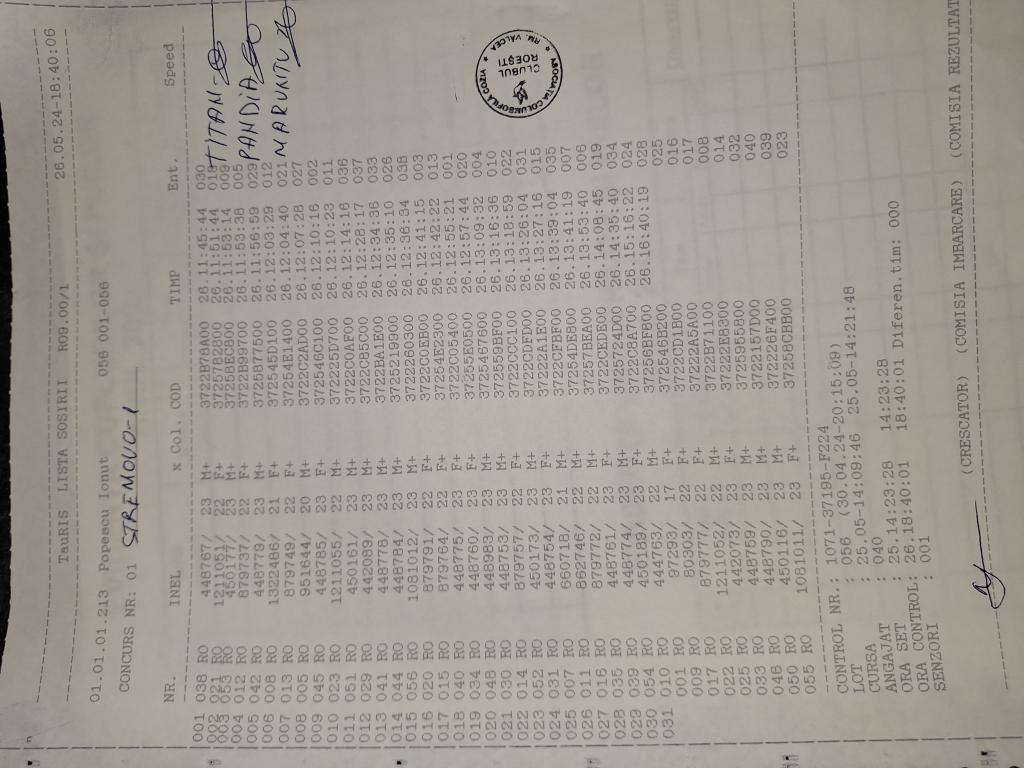 TauRIS LISTA SOSIRI R09.00/1 26.05.24-18:40:06
01.01.01.213 Popescu Ionut 056 001-056
CONCURS NR: 01 STREMOVO-1
NR. INEL x Col. COD TIMP Ent. Speed
001 038 RO 448787/ 23 M+ 3722B78A00 26.11:45:44 030
002 021 RO 1211061/ 22 F+ 37257B2800 26.11:51:44 018 TITAN
003 053 RO 450177/ 23 M+ 37258EC800 26.11:53:14 009
004 012 RO 879737/ 22 F+ 3722B99700 26.11:53:38 005 PANDIA
005 042 RO 448779/ 23 M+ 3725877500 26.11:56:59 029
006 008 RO 1322486/ 21 F+ 26.12:03:29 012
007 013 RO 879749/ 22 F+ 37254E1400 26.12:04:40 021 MARUNITU
008 005 RO 951644/ 20 M+ 3722C2AD00 26.12:07:28 027
009 045 RO 448785/ 23 F+ 372546C100 26.12:10:16 002
010 023 RO 1211055/ 22 M+ 3722C0AF00 26.12:10:23 011
011 051 RO 450161/ 23 M+ 372225D700 26.12:14:16 036
012 029 RO 442089/ 23 M+ 3722C86C00 26.12:28:17 037
013 041 RO 449778/ 23 M+ 3722BA1E00 26.12:34:36 033
014 044 RO 448784/ 23 M+ 3725219900 26.12:35:10 026
015 056 RO 1081012/ 23 M+ 3722260300 26.12:36:34 038
016 020 RO 879791/ 22 F+ 3722C0EB00 26.12:41:15 003
017 015 RO 879764/ 22 F+ 37254E2300 26.12:42:22 013
018 040 RO 448775/ 23 F+ 3722C05400 26.12:55:21 001
019 034 RO 448760/ 23 F+ 37255E0500 26.12:57:44 020
020 048 RO 448983/ 23 M+ 3722CFBF00 26.13:09:32 004
021 030 RO 448753/ 23 M+ 3725467600 26.13:16:36 010
022 014 RO 879757/ 22 F+ 3722CCC100 26.13:18:59 022
023 052 RO 450173/ 23 M+ 3722CDFD00 26.13:26:04 031
024 031 RO 448754/ 23 F+ 37222A1E00 26.13:27:16 015
025 007 RO 660718/ 21 M+ 3722CFBF00 26.13:39:04 035
026 011 RO 862746/ 22 M+ 37254DE800 26.13:41:19 007
027 016 RO 879772/ 22 F+ 37257BEA00 26.13:53:40 006
028 035 RO 448761/ 23 F+ 3722CEDE00 26.14:08:45 019
029 039 RO 448774/ 23 F+ 3725724D00 26.14:35:40 034
030 054 RO 450189/ 23 M+ 3722C9A700 26.15:16:22 024
031 010 RO 444763/ 22 M+ 37256BF800 26.16:40:19 028
001 RO 97293/ 17 F+ 372546B200 025
009 RO 80303/ 22 F+ 3722CD1B00 016
017 RO 879777/ 22 F+ 3722B71100 017
022 RO 1211052/ 22 M+ 37222A5A00 008
025 RO 442073/ 23 F+ 014
033 RO 448759/ 23 M+ 3725955800 032
046 RO 448790/ 23 M+ 3722157D00 040
050 RO 450116/ 23 M+ 372226F400 039
055 RO 1081011/ 23 F+ 37256CBB00 023
ASOCIATIA COLUMBOFILA VIZOO * RM. VALCEA *
CLUBUL
ROEȘTI
CONTROL NR.: 1071-37195-F224
LOT : 056 (30.04.24-20:15:09)
CURSA : 25.05-14:09:46 25.05-14:21:48
ANGAJAT : 040
ORA SET : 25.14:23:28 14:23:28
ORA CONTROL: 26.18:40:01 18:40:01 Diferen.tim: 000
SENZORI : 001
(CRESCATOR) (COMISIA IMBARCARE) (COMISIA REZULTAT